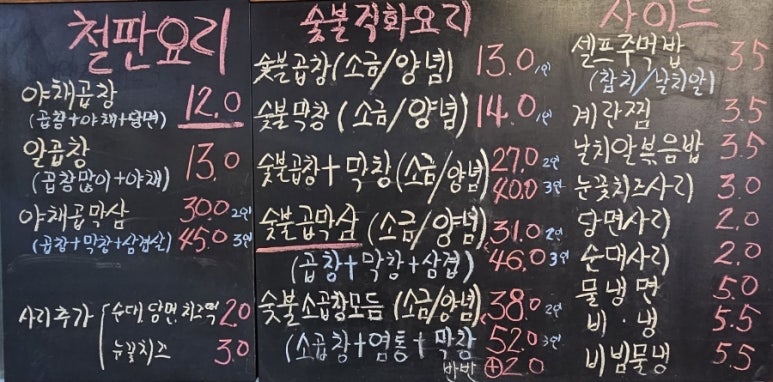 철판요리
야채곱창 12.0
(곱창+야채+당면)
알곱창 13.0
(곱창많이+야채)
야채곱막삼 30.0 2인
(곱창+막창+삼겹살) 45.0 3인
사리추가 순대, 당면, 치즈떡 2.0
눈꽃치즈 3.0
숯불직화요리
숯불곱창(소금/양념) 13.0 /인
숯불막창(소금/양념) 14.0 /인
숯불곱창+막창(소금/양념) 27.0 2인
40.0 3인
숯불곱막삼(소금/양념) 31.0 2인
(곱창+막창+삼겹) 46.0 3인
숯불소곱창모듬(소금/양념) 38.0 2인
(소곱창+염통+막창 52.0 3인
반반 +2.0
사이드
셀프주먹밥 3.5
(참치/날치알)
계란찜 3.5
날치알볶음밥 3.5
눈꽃치즈사리 3.0
당면사리 2.0
순대사리 2.0
물냉면 5.0
비·냉 5.5
비빔물냉 5.5